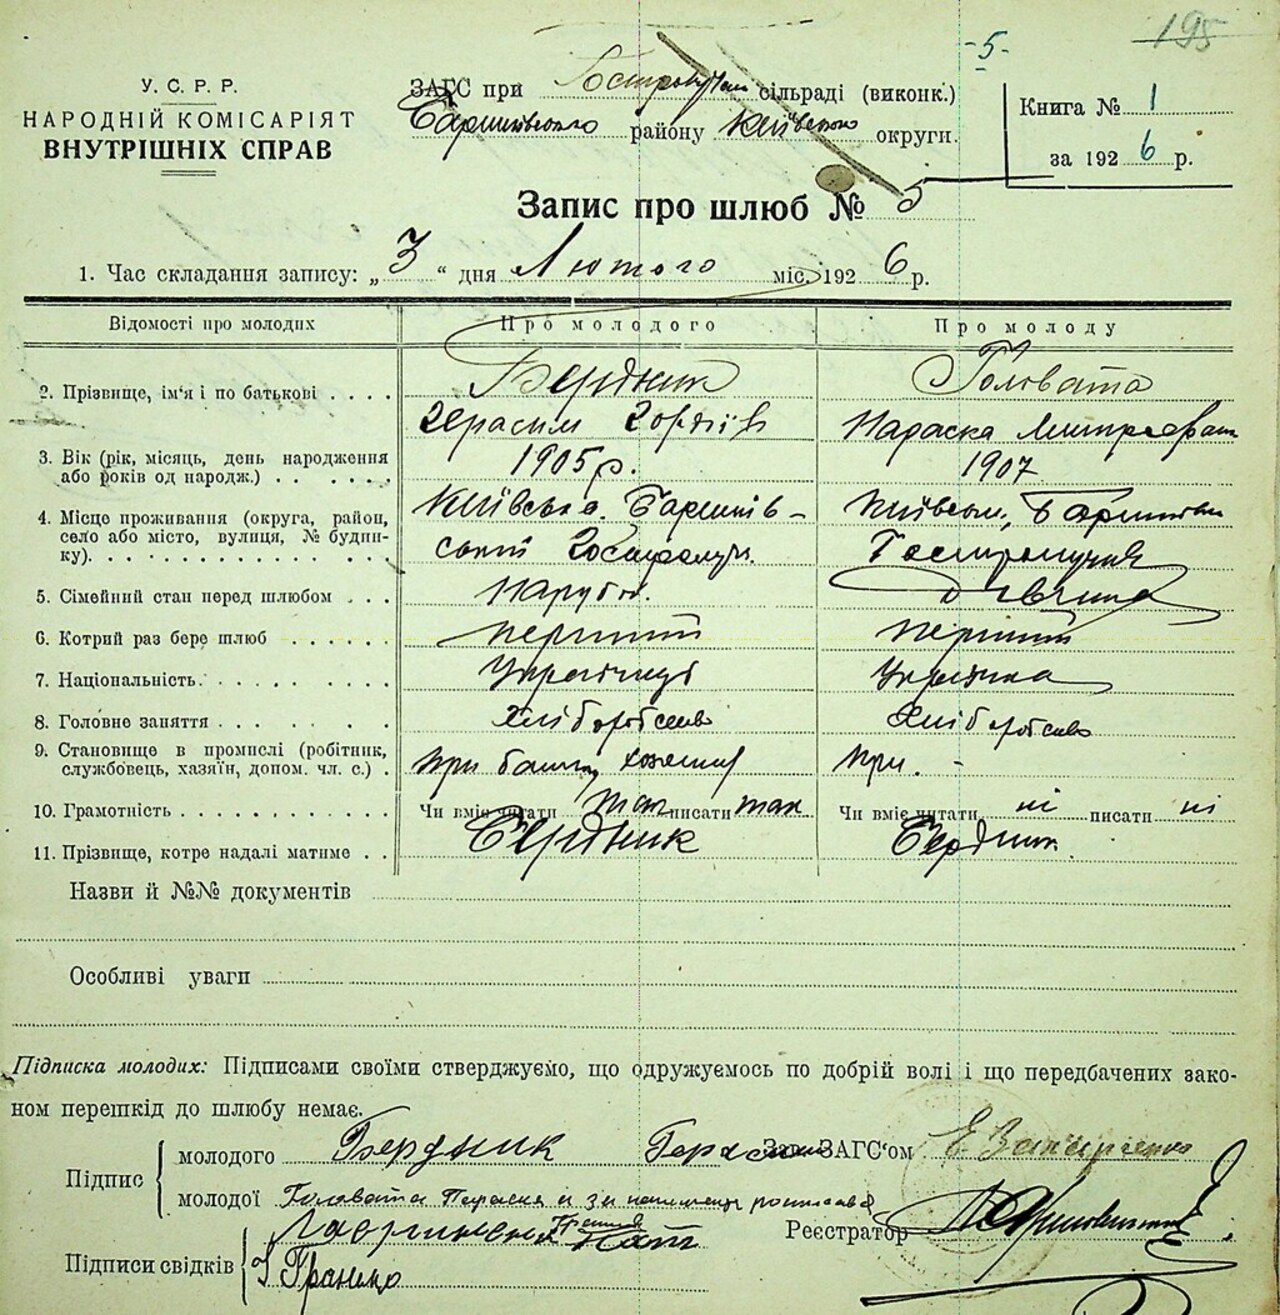 195
-5-
У. С. Р. Р.
НАРОДНІЙ КОМІСАРІЯТ
ВНУТРІШНІХ СПРАВ
ЗАГС при сільраді (виконк.)
району округи.
Книга № 1
за 1926 р.
Запис про шлюб № 5
1. Час складання запису: „3“ дня Лютого міс. 1926 р.
Відомості про молодих Про молодого Про молоду
2. Прізвище, ім'я і по батькові . . . . Бердник Головата
Герасим Гордіїв Параска
3. Вік (рік, місяць, день народження 1905 р. 1907
або років од народж.) . . . . . .
4. Місце проживання (округа, район, Київська. Баришів-
село або місто, вулиця, № будин-
ку). . . . . . . . . . . . . . ський
5. Сімейний стан перед шлюбом . . . Парубок. Дівчина
6. Котрий раз бере шлюб . . . . . . перший перший
7. Національність. . . . . . . . . . Українець Українка
8. Головне заняття . . . . . . . . Хліборобство Хліборобство
9. Становище в промислі (робітник, при
службовець, хазяїн, допом. чл. с.) . при. -
10. Грамотність . . . . . . . . . . . . Чи вміє читати так писати так Чи вміє читати ні писати ні
11. Прізвище, котре надалі матиме . . Бердник Бердник.
Назви й №№ документів
Особливі уваги
Підписка молодих: Підписами своїми стверджуємо, що одружуємось по добрій волі і що передбачених зако-
ном перешкід до шлюбу немає.
Підпис
молодого Бердник Герасим Зав. ЗАГС'ом
молодої Головата Параска а за
Реєстратор
Підписи свідків